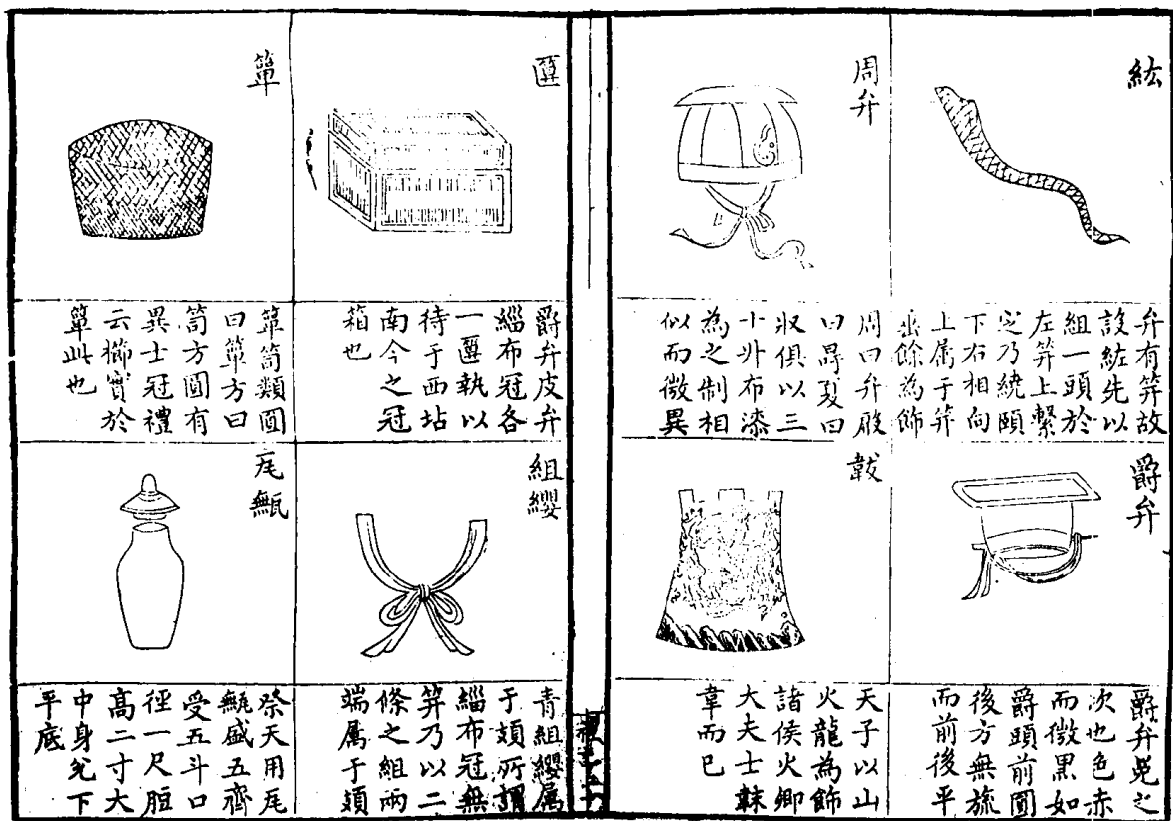 紘
弁有笄故
設紘先以
組一頭於
左笄上繫
定乃繞頤
下右相向
上属于笄
垂餘為飾
周弁
周曰弁殷
曰冔夏曰
收俱以三
十升布漆
為之制相
似而微異
爵弁
爵弁冕之
次也色赤
而微黒如
爵頭前圓
後方無旒
而前後平
韍
天子以山
火龍為飾
諸侯火卿
大夫士韎
韋而已
匴
爵弁皮弁
緇布冠各
一匴執以
待于西坫
南今之冠
箱也
簞
簞笥類圓
曰簞方曰
笥方圓有
異士冠禮
云櫛實於
簞此也
組纓
青組纓属
于頍所謂
緇布冠無
笄乃以二
條之組兩
端属于頍
瓦甒
祭天用瓦
甒盛五齊
受五斗口
徑一尺脰
高二寸大
中身兊下
平底